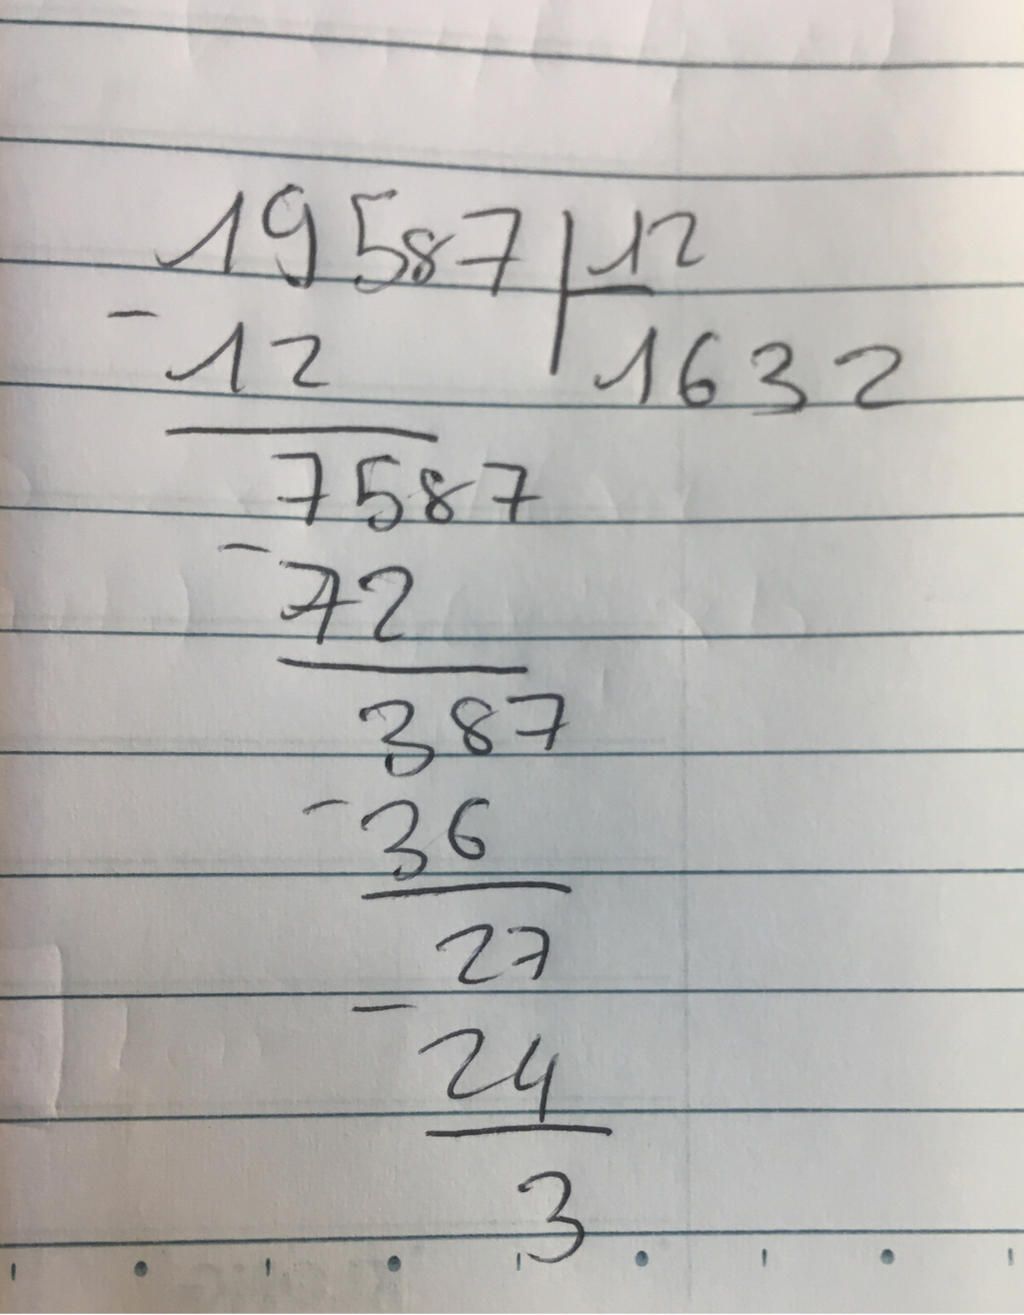 19587 | 12
- 12 1632
7587
- 72
387
- 36
27
- 24
3